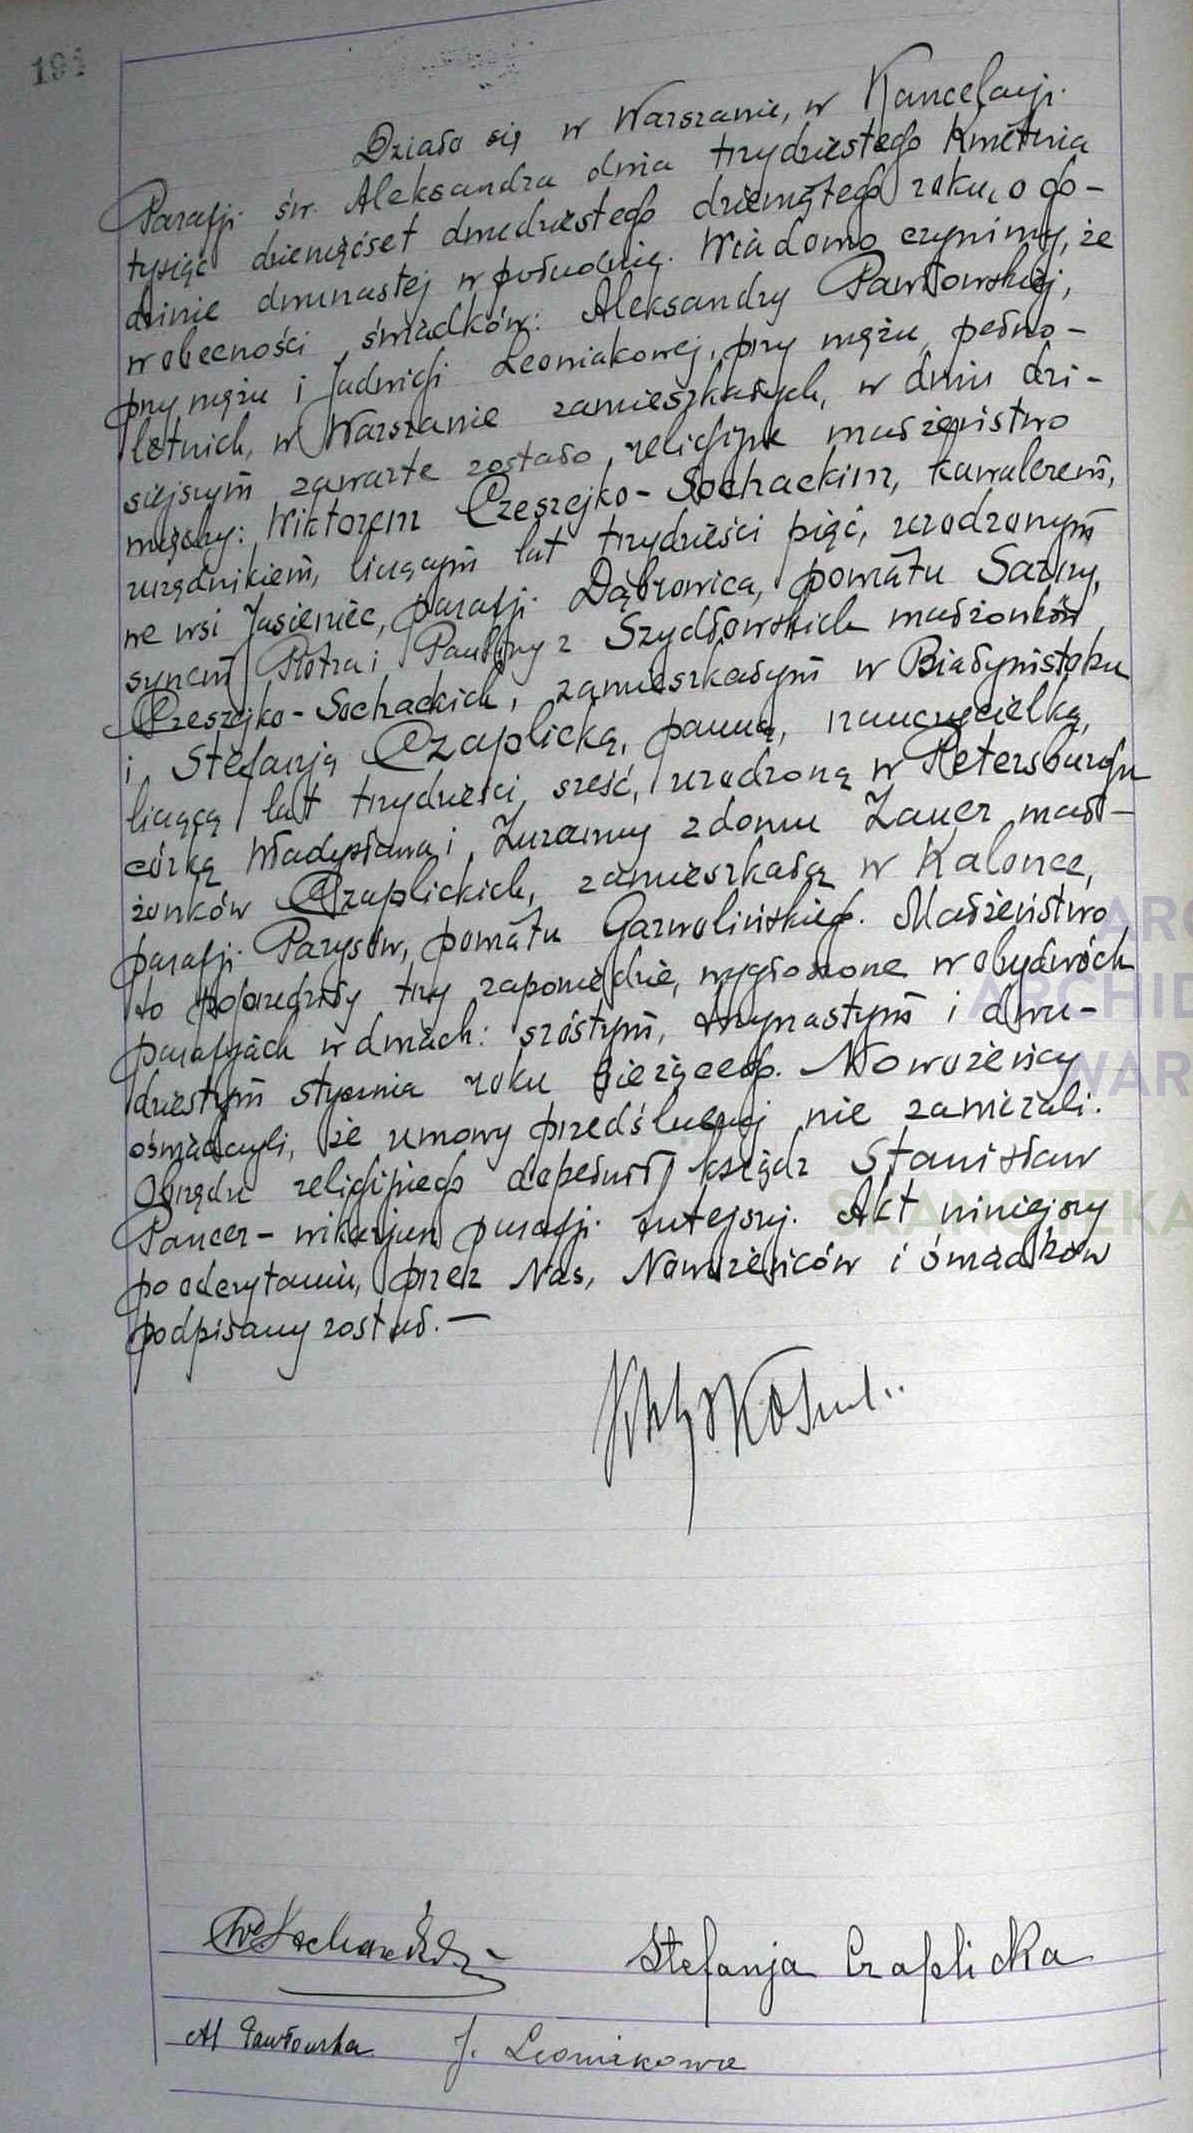 194
Działo się w Warszawie, w Kancelarji
Parafji św. Aleksandra dnia trzydziestego Kwietnia
tysiąc dziewięćset dwudziestego dziewiątego roku, o go-
dzinie dwunastej w południe. Wiadomo czynimy, że
w obecności świadków: Aleksandry Pawłowskiej,
przy mężu i Jadwigi Leoniakowej, przy mężu, pełno-
letnich, w Warszawie zamieszkałych, w dniu dzi-
siejszym zawarte zostało religijne małżeństwo
między: Wiktorem Czeszejko-Sochackim, kawalerem,
urzędnikiem, liczącym lat trzydzieści pięć, urodzonym
we wsi Jasieniec, parafji Dąbrowica, powiatu Sarny,
synem Piotra i Pauliny z Szydłowskich małżonków
Czeszejko-Sochackich, zamieszkałym w Białymstoku
i Stefanją Czaplicką, panną, nauczycielką,
liczącą lat trzydzieści sześć, urodzoną w Petersburgu
córką Władysława i Zuzanny z domu Zauer mał-
żonków Czaplickich, zamieszkałą w Kalonce,
parafji Parysów, powiatu Garwolińskiego. Małżeństwo
to poprzedziły trzy zapowiedzie, wygłoszone w obydwóch
parafjach w dniach: szóstym, trzynastym i dwu-
dziestym stycznia roku bieżącego. Nowożeńcy
oświadczyli, że umowy przedślubnej nie zawierali.
Obrzędu religijnego dopełnił ksiądz Stanisław
Pancer - wikarjusz parafji tutejszej. Akt niniejszy
po odczytaniu, przez Nas, Nowożeńców i świadków
podpisany został. —
W Sochacki
Stefanja Czaplicka
Al Pawłowska
J. Leoniakowa
ARC
ARCHID
WAR
SKANOTEKA